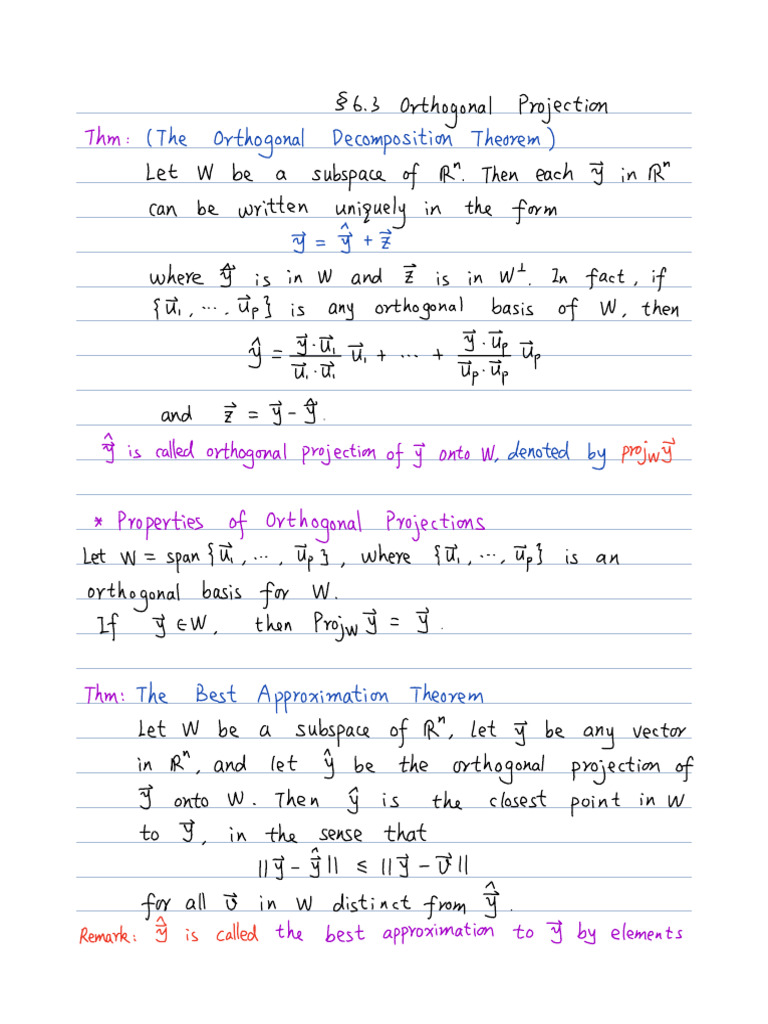 §6.3 Orthogonal Projection
Thm: (The Orthogonal Decomposition Theorem)
Let W be a subspace of ℝⁿ. Then each y⃗ in ℝⁿ
can be written uniquely in the form
y⃗ = ŷ⃗ + z⃗
where ŷ⃗ is in W and z⃗ is in W⊥. In fact, if
{u⃗₁, ..., u⃗ₚ} is any orthogonal basis of W, then
ŷ = (y⃗·u⃗₁)/(u⃗₁·u⃗₁) u⃗₁ + ... + (y⃗·u⃗ₚ)/(u⃗ₚ·u⃗ₚ) u⃗ₚ
and z⃗ = y⃗ - ŷ⃗.
ŷ⃗ is called orthogonal projection of y⃗ onto W, denoted by proj_W y⃗
* Properties of Orthogonal Projections
Let W = span {u⃗₁, ..., u⃗ₚ}, where {u⃗₁, ..., u⃗ₚ} is an
orthogonal basis for W.
If y⃗ ∈ W, then Proj_W y⃗ = y⃗.
Thm: The Best Approximation Theorem
Let W be a subspace of ℝⁿ, let y⃗ be any vector
in ℝⁿ, and let ŷ be the orthogonal projection of
y⃗ onto W. Then ŷ is the closest point in W
to y⃗, in the sense that
||y⃗ - ŷ⃗|| ≤ ||y⃗ - v⃗||
for all v⃗ in W distinct from ŷ⃗.
Remark: ŷ⃗ is called the best approximation to y⃗ by elements